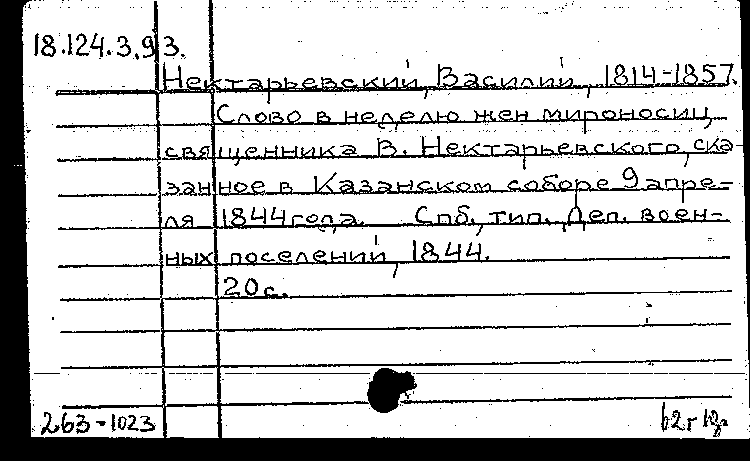 18.124.3.93.
Нектарьевский, Василий, 1814-1857.
Слово в неделю жен мироносиц,
священника В. Нектарьевского, ска-
занное в Казанском соборе 9 апре-
ля 1844 года. Спб., тип. Деп. воен-
ных поселений, 1844.
20 с.
263-1023